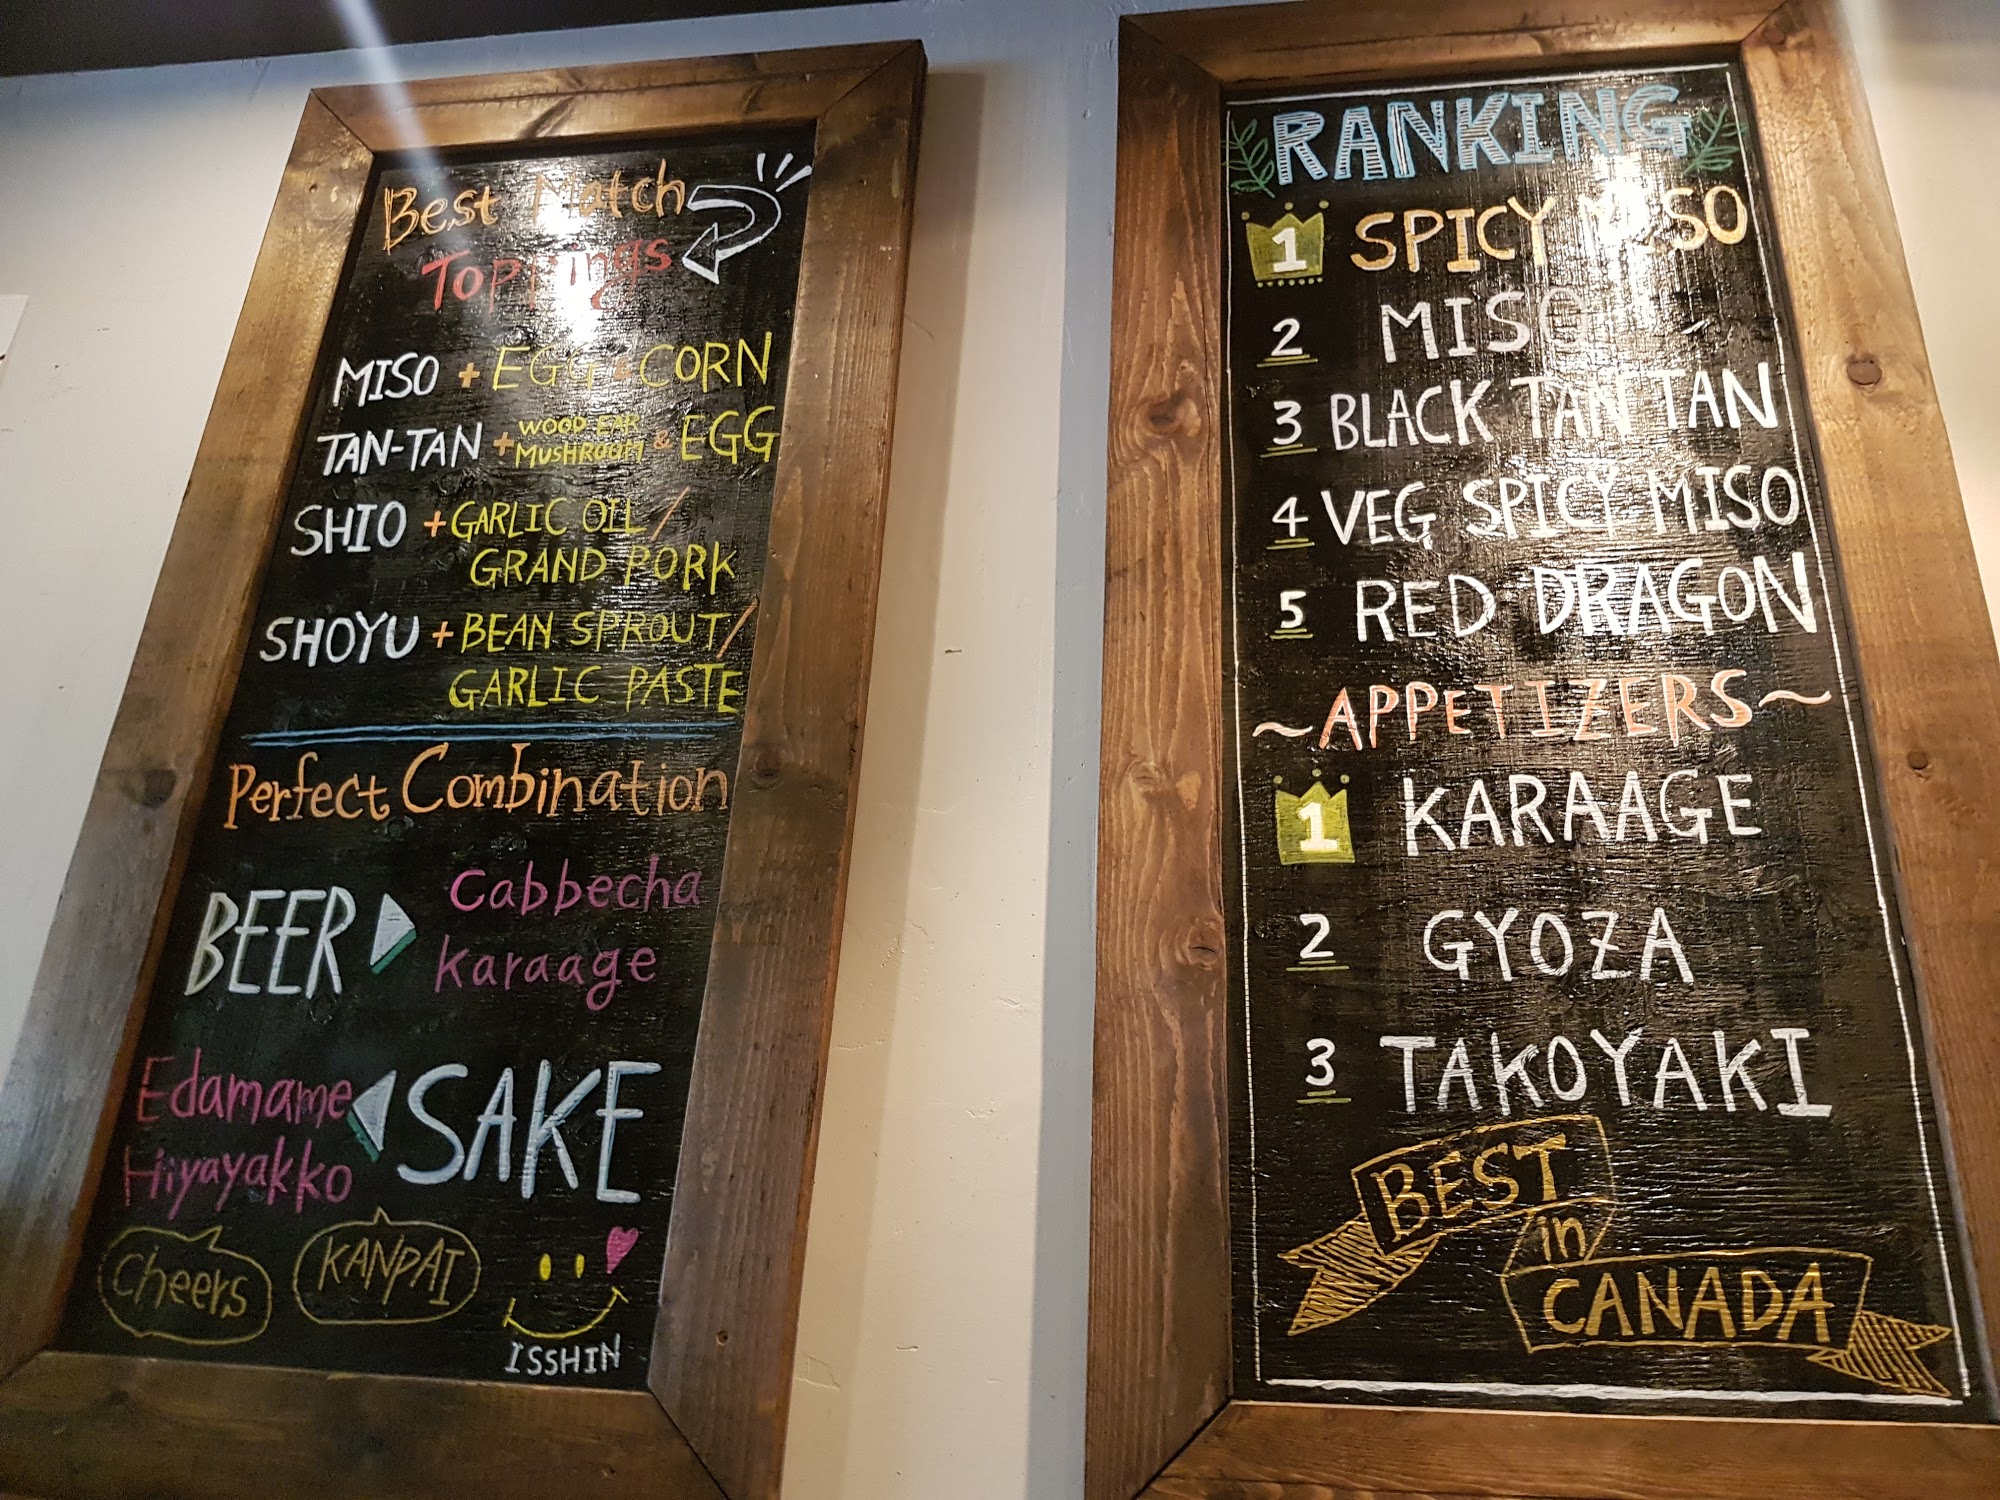 Best Match
Toppings
MISO + EGG & CORN
TAN-TAN + WOOD EAR MUSHROOM & EGG
SHIO + GARLIC OIL /
GRAND PORK
SHOYU + BEAN SPROUT /
GARLIC PASTE
Perfect Combination
BEER
Cabbecha
Karaage
Edamame
Hiyayakko
SAKE
Cheers
KANPAI
ISSHIN
RANKING
1 SPICY MISO
2 MISO
3 BLACK TAN TAN
4 VEG SPICY MISO
5 RED DRAGON
~APPETIZERS~
1 KARAAGE
2 GYOZA
3 TAKOYAKI
BEST
in
CANADA